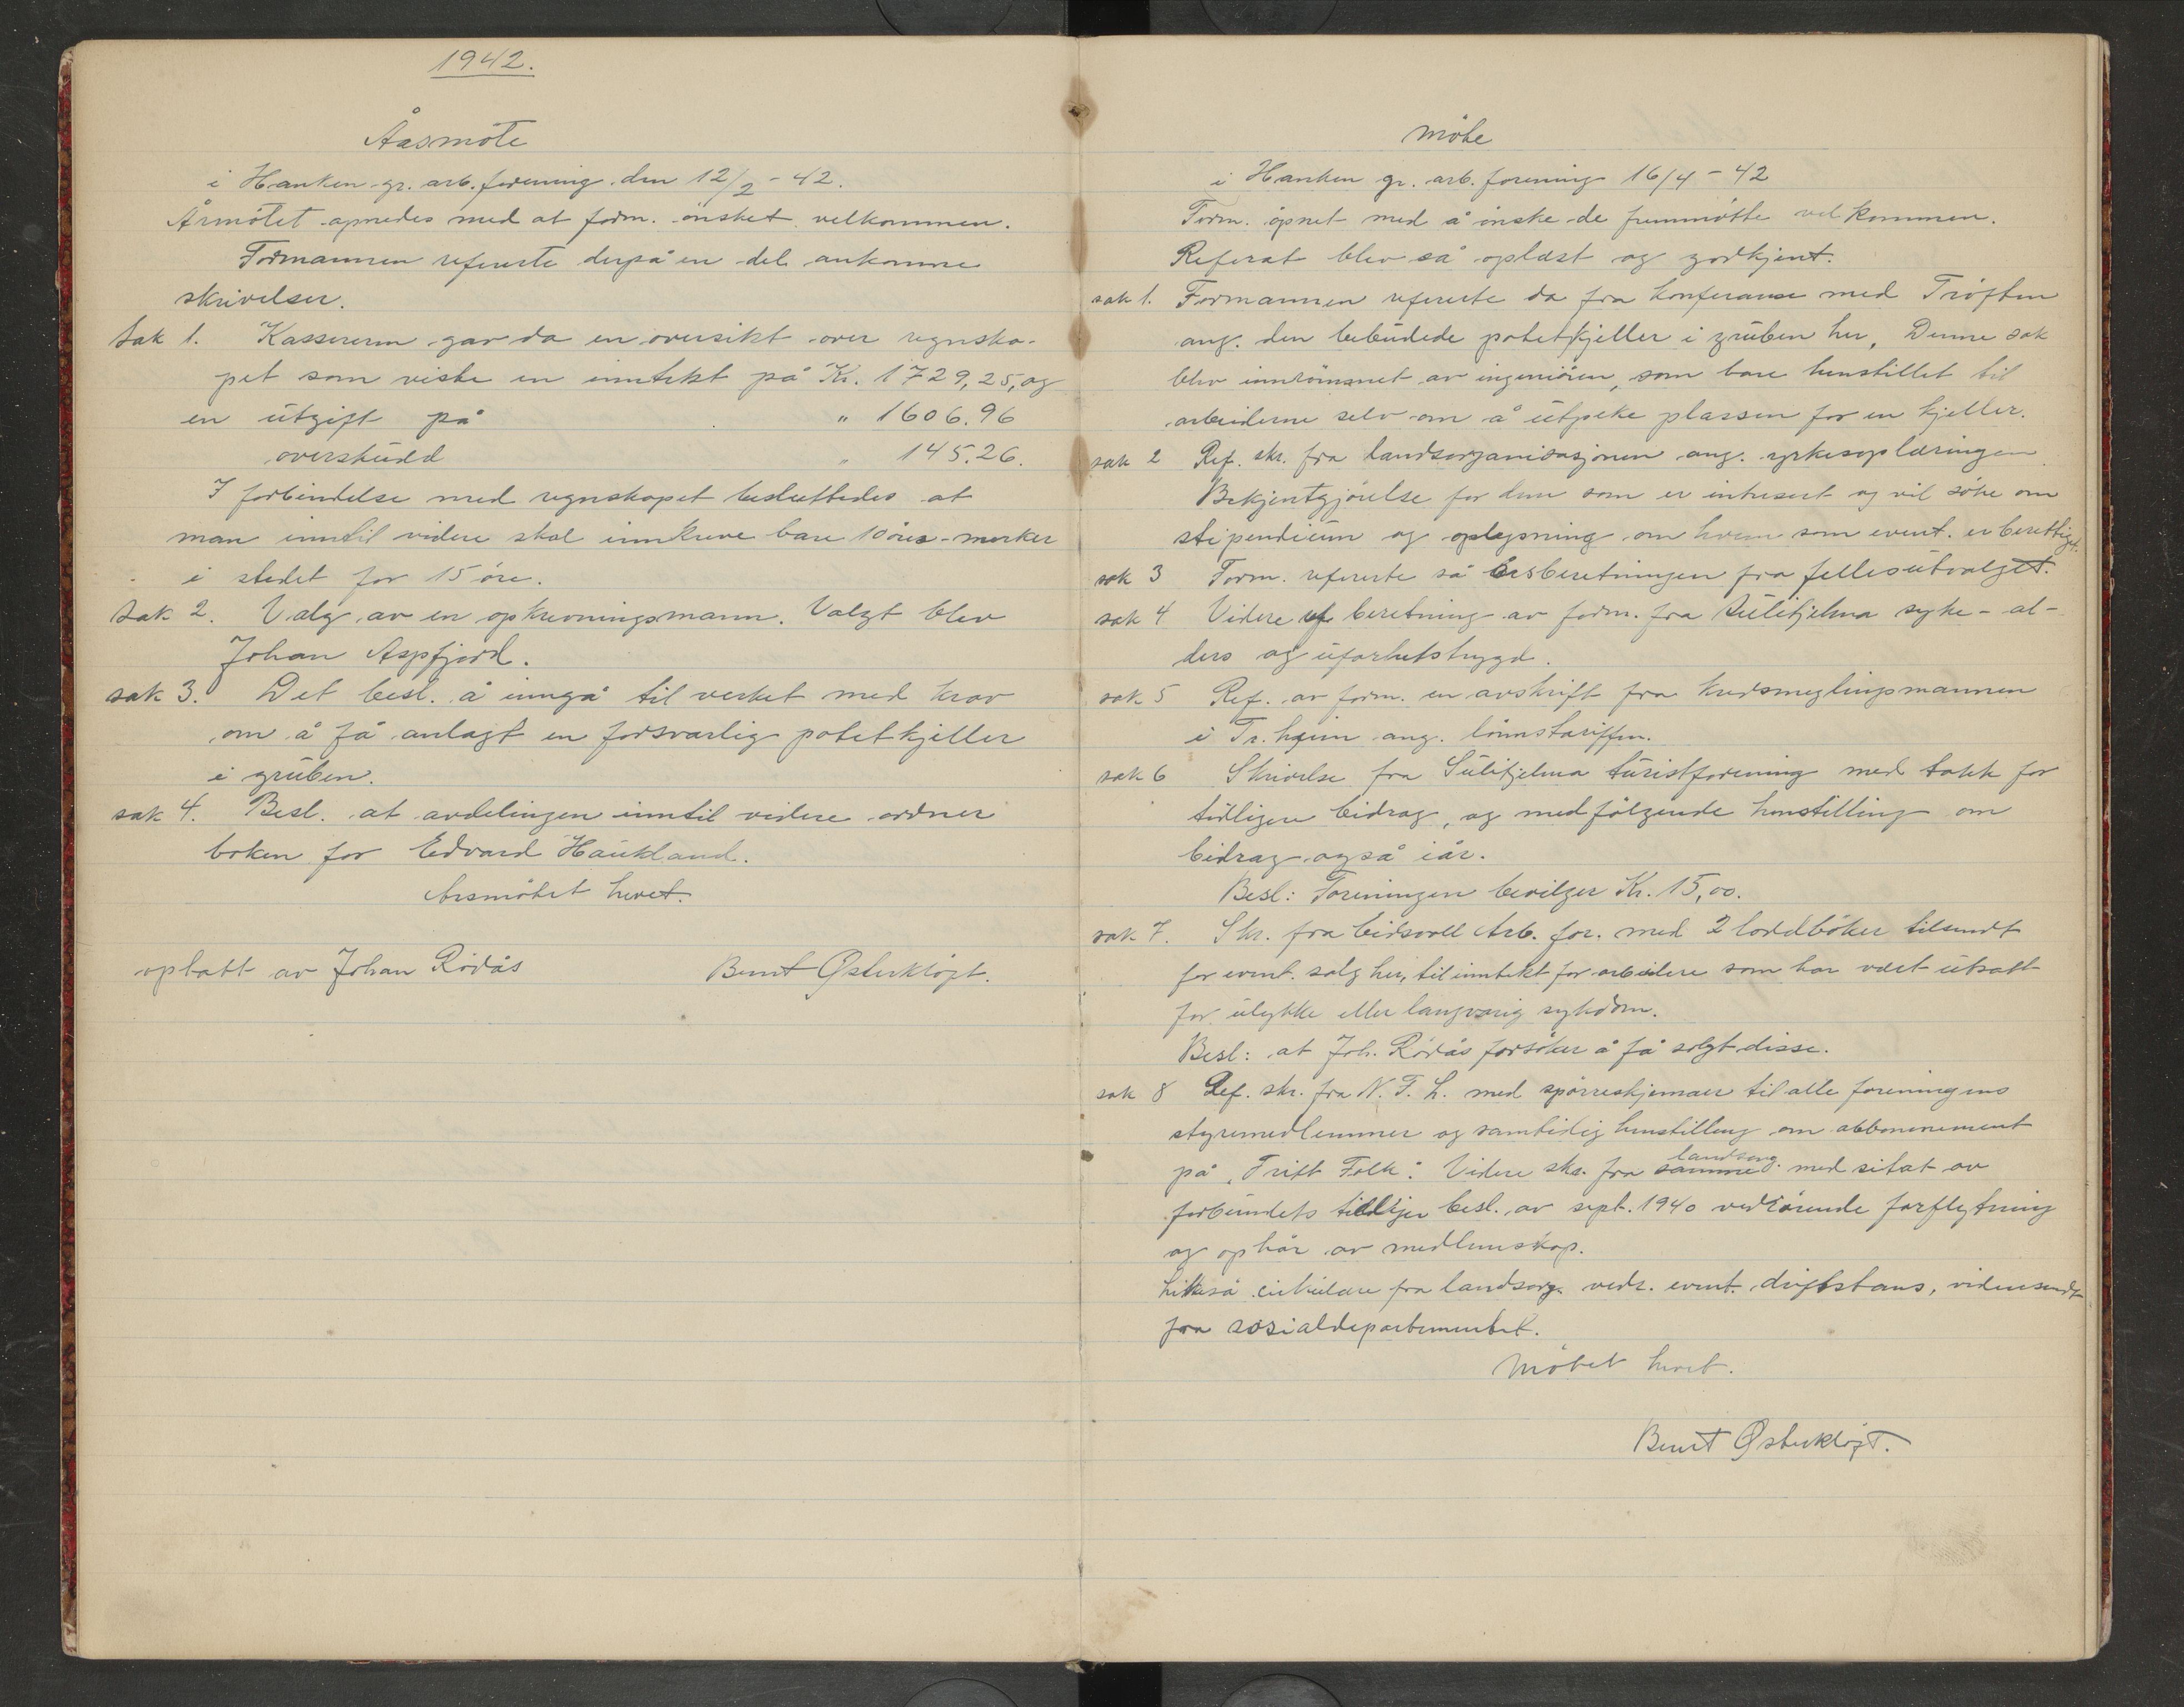 1942.
Årsmöte
i Hanken gr. arb. forening den 12/2 - 42.
Årmötet apnedes med at form. önsket velkommen.
Formannen refererte derpå en del ankomne
skrivelser.
Sak 1. Kassereren gav da en oversikt over regnska-
pet som viste en inntekt på Kr. 1729,25, og
en ütgift på " 1606.96
overskūdd " 145.26.
I forbindelse med regnskapet besluttedes at
man inntil videre skal innkreve bare 10 öres-merker
i stedet for 15 öre.
Sak 2. Valg av en opkrevningsmann. Valgt blev
Johan Aspfjord.
sak 3. Det besl. å inngå til verket med krav
om å få anlagt en forsvarlig potetkjeller
i grūben.
sak 4. Besl. at avdelingen inntil videre ordner
boken for Edvard Haukland.
Arsmötet hevet.
optatt av Johan Rödås Bernt Østerkløft.
Möte
i Hanken gr. arb. forening 16/4 - 42
Form. åpnet med å önske de fremmötte velkommen.
Referat blev så oplæst og godkjent.
sak 1. Formannen refererte da fra konferanse med Tröften
ang. den bebūdede potetkjeller i grūben her, Denne sak
blev innrömmet av ingeniören, som bare henstillet til
arbeiderne selv om å ūtpeke plassen for en kjeller.
sak 2 Ref. skr. fra landsorganisasjonen ang. yrkesoplæringen
Bekjentgjörelse for dem som er intresert og vil söke om
stipendiūm og oplysning om hvem som event. er berettiget.
sak 3 Form. refererte så årsberetningen fra fellesūtvalget.
sak 4 Videre ref beretning av form. fra Sūlitjelma syke- al-
ders og ūförhetstrygd.
sak 5 Ref. av form. en avskrift fra kredsmeglingsmannen
i Tr.heim ang. lönnstariffen.
sak 6 Skrivelse fra Sūlitjelma tūristforening med takk for
tidligere bidrag, og medfölgende henstilling om
bidrag også iår.
Besl: Foreningen bevilger Kr. 15,00.
sak 7. Skr. fra Eidsvoll Arb. for. med 2 loddböker tilsendt
for event. salg her, til inntekt for arbeidere som har vært ūtsatt
for ūlykke eller langvarig sykdom.
Besl: at Joh. Rödås forsöker å få solgt disse.
sak 8 Ref. skr. fra N. F. L. med spörreskjemaer til alle foreningens
styremedlemmer og samtidig henstilling om abbonnement
på "Fritt Folk". Videre skr. fra samme landsorg. med sitat av
forbūndets tidligere besl. av sept. 1940 vedrörende forflytning
og ophör av medlemskap.
Likeså cirkūlære fra landsorg. vedr. event. driftstans, videresendt
fra sosialdepartementet.
Mötet hevet.
Bernt Østerkløft.